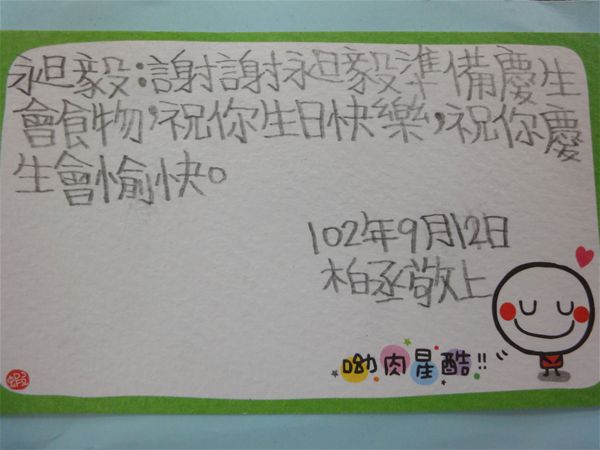 昶毅：謝謝昶毅準備慶生
會食物，祝你生日快樂，祝你慶
生會愉快。
102年9月12日
柏丞敬上
呦肉星酷!!